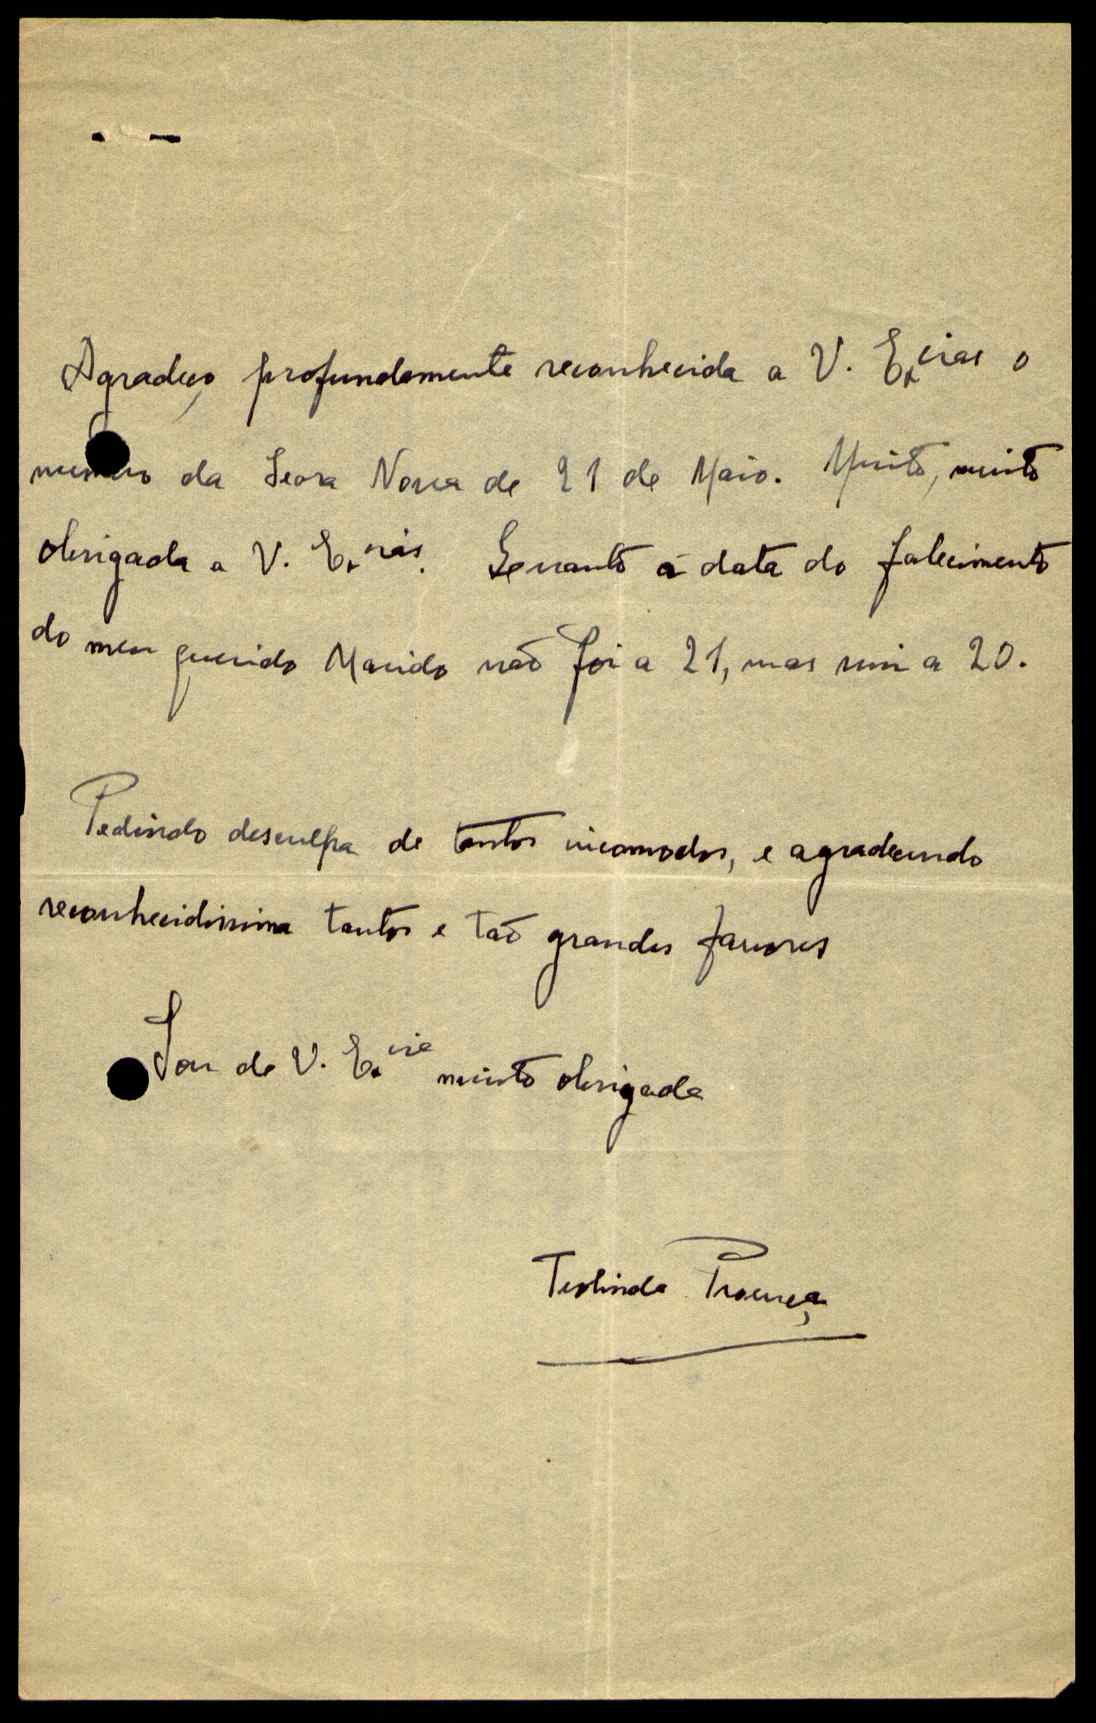 Agradeço profundamente reconhecida a V. Ex.cias o
numero da Seara Nova de 21 de Maio. Muito, muito
obrigada a V. Ex.cias. Quanto á data do falecimento
do meu querido Marido não foi a 21, mas sim a 20.
Pedindo desculpa de tantos incomodos, e agradecendo
reconhecidissima tantos e tão grandes favores
Sou de V. Ex.cia muito obrigada
Teolinda Proença